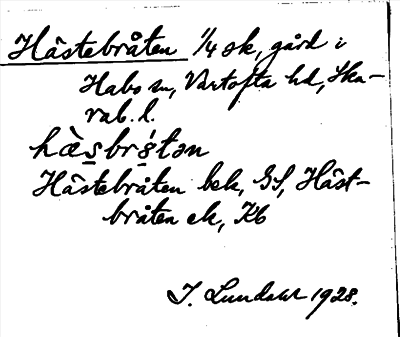 Hästebråten 1/4 sk, gård i
Habo sn, Vartofta hd, Ska-
rab. l.
hæ̀s̲brs̲̊́tən
Hästebråten bek, GS, Häst-
bråten ek, Kb
I. Lundahl 1928.